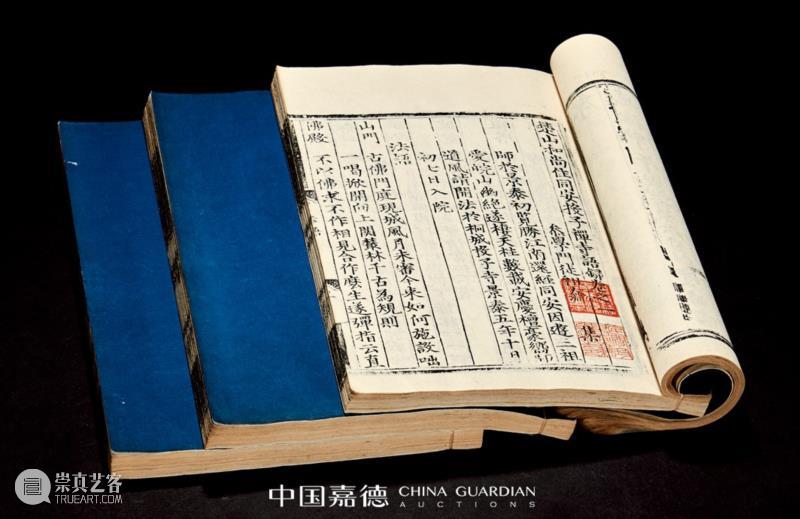 楚山和尚住同安投子禪寺語錄卷之
參學門徒 集
師於景泰初覽勝江南還經同安因遊二祖
愛皖山幽絕遂棲天柱數載安慶檀
道風請開法於桐城投子寺景泰五年十日
初七日入院
法語
山門 古佛門庭現成風月未審今來如何施設咄
一喝掀開向上関叢林千古為規則
佛殿 不以佛求不作相見合作麼生遂彈指云直
崇真艺客
TRUEART.COM
中国嘉德 CHINA GUARDIAN
AUCTIONS